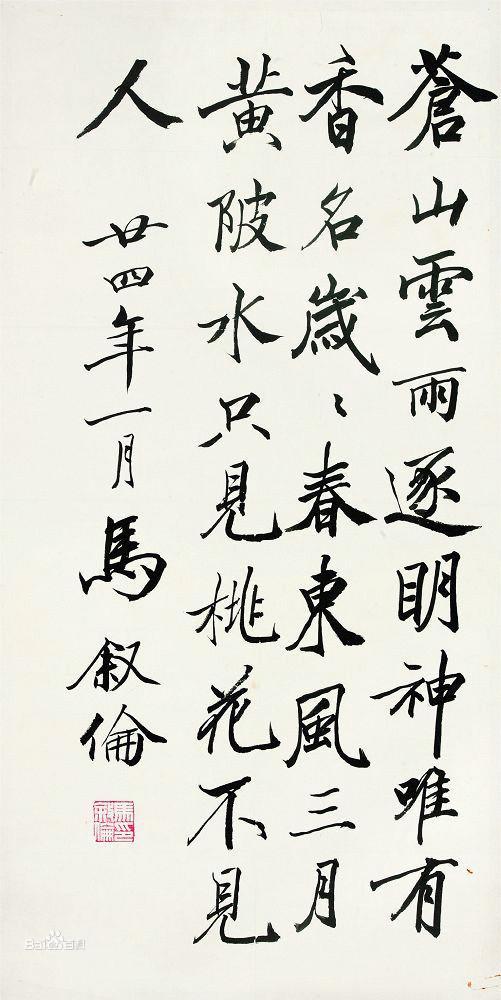 蒼山雲雨逐明神唯有
香名歲〻春東風三月
黃陂水只見桃花不見
人
廿四年一月馬叙倫
馬叙倫印
Baidu百科